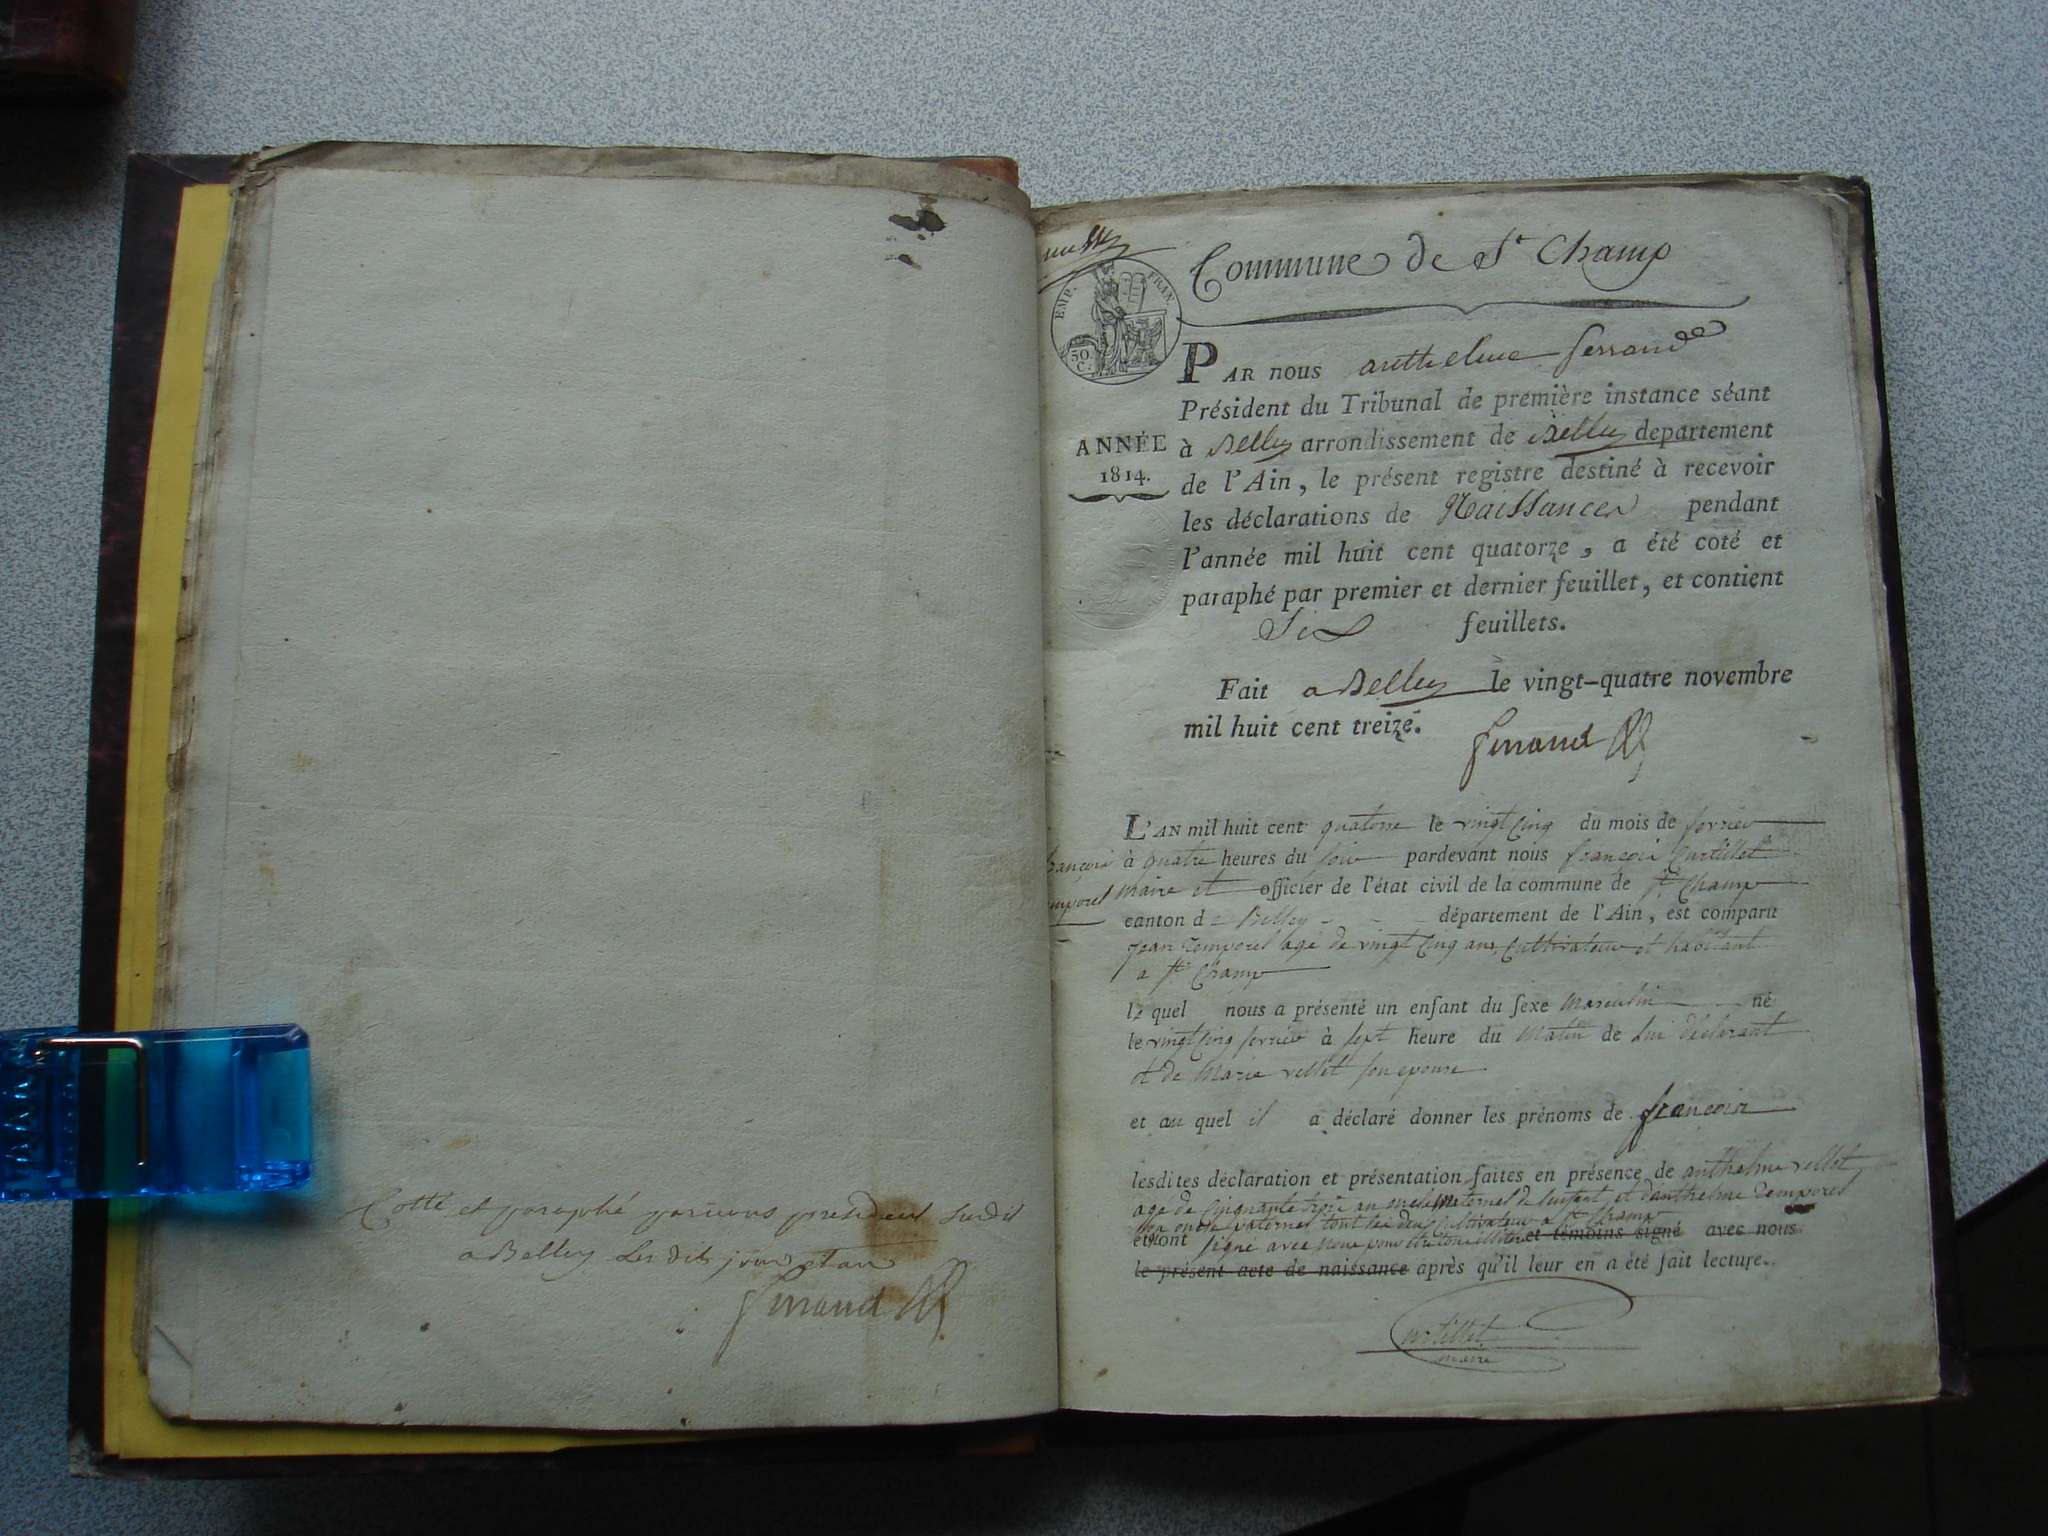 Cotté et paraphé par nous président susdit
a Belley les dits jour et an
ferrand
Commune de St Champ
EMP. FRAN.
50.
C.
PAR nous anthelme ferrand
Président du Tribunal de première instance séant
à Belley arrondissement de Belley departement
de l'Ain, le présent registre destiné à recevoir
les déclarations de Naissances pendant
l'année mil huit cent quatorze, a été coté et
paraphé par premier et dernier feuillet, et contient
Six feuillets.
ANNÉE
1814.
Fait a Belley le vingt-quatre novembre
mil huit cent treize.
ferrand
L'AN mil huit cent quatorse le vingt cinq du mois de fevrier
à quatre heures du soir pardevant nous françois Curtillet
maire et officier de l'état civil de la commune de St Champ
canton de Belley département de l'Ain, est comparu
jean temporel agé de vingt cinq ans cultivateur et habitant
a St Champ
le quel nous a présenté un enfant du sexe masculin né
le vingt cinq fevrier à sept heure du matin de lui déclarant
et de Marie vellet son epouse
et au quel il a déclaré donner les prénoms de françois
lesdites déclaration et présentation faites en présence de anthelme vellet
agé de cinquante trois an oncle maternel de l'enfant et d'anthelme temporel
oncle paternel tout les deux cultivateur a St Champ
et ont signé avec nous et témoins signé avec nous
le présent acte de naissance après qu'il leur en a été fait lecture.
françois
temporel
Curtillet
maire